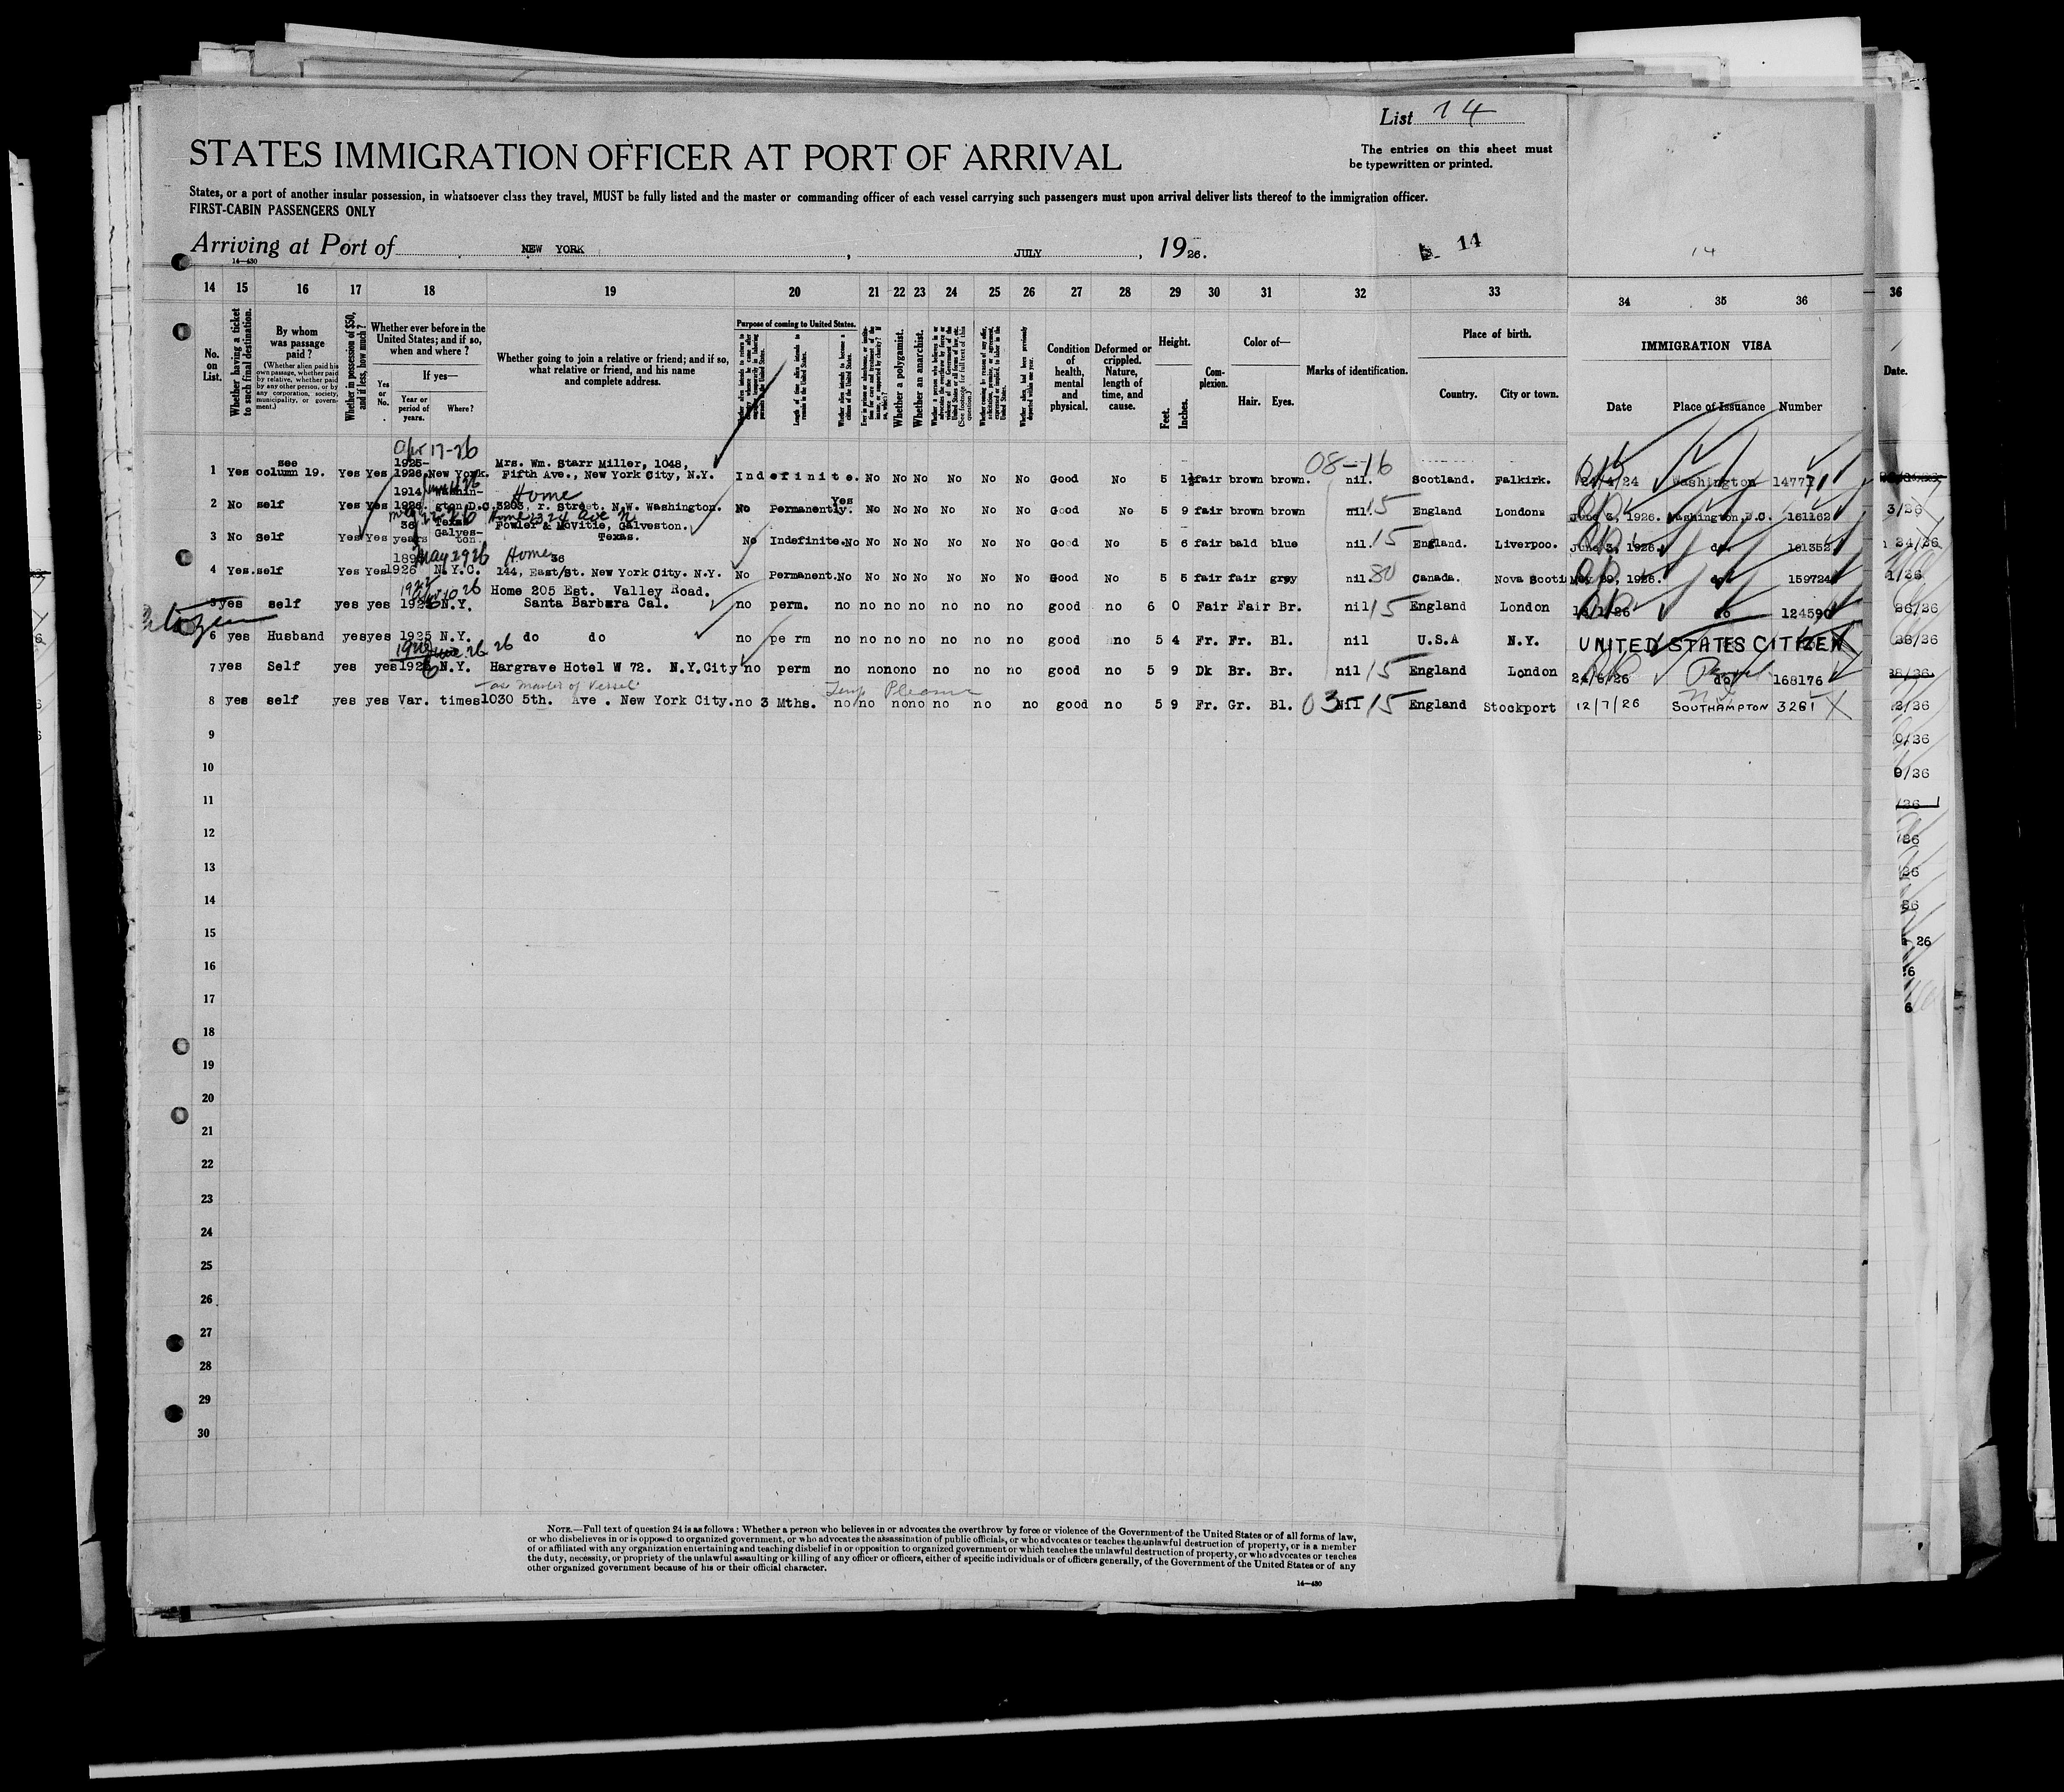 List 14
STATES IMMIGRATION OFFICER AT PORT OF ARRIVAL
The entries on this sheet must
be typewritten or printed.
States, or a port of another insular possession, in whatsoever class they travel, MUST be fully listed and the master or commanding officer of each vessel carrying such passengers must upon arrival deliver lists thereof to the immigration officer.
FIRST-CABIN PASSENGERS ONLY
Arriving at Port of NEW YORK, JULY, 1926.
14
14
14—430
14 15 16 17 18 19 20 21 22 23 24 25 26 27 28 29 30 31 32 33 34 35 36
36
No. on List.
Whether having a ticket to such final destination.
By whom was passage paid?
(Whether alien paid his own passage, whether paid by relative, whether paid by any other person, or by any corporation, society, municipality, or government.)
Whether in possession of $50, and if less, how much?
Whether ever before in the United States; and if so, when and where?
Yes or No.
If yes—
Year or period of years.
Where?
Whether going to join a relative or friend; and if so, what relative or friend, and his name and complete address.
Purpose of coming to United States.
Length of time alien intends to remain in the United States.
Whether alien intends to become a citizen of the United States.
Whether a polygamist.
Whether an anarchist.
Condition of health, mental and physical.
Deformed or crippled. Nature, length of time, and cause.
Height.
Feet.
Inches.
Complexion.
Color of—
Hair.
Eyes.
Marks of identification.
Place of birth.
Country.
City or town.
IMMIGRATION VISA
Date
Place of Issuance
Number
Date.
Apr 17-26
see 1925- Mrs. Wm. Starr Miller, 1048, 08-16
1 Yes column 19. Yes Yes 1926 New York. Fifth Ave., New York City, N.Y. Indefinite. No No No No No No Good No 5 fair brown brown. nil. Scotland. Falkirk. 24/4/24 Washington
1914 Washin- Home Yes
2 No self Yes Yes 1926. gton D.C. 3203, r. Street, N.W. Washington. No Permanently. No No No No No No Good No 5 9 fair brown brown nil 15 England London. June 3, 1926. Washington D.C. 161162
36 Texas Home 2324 Ave N
Fowler & McVitie, Galveston.
3 No Self Yes Yes years Galveston. Texas. No Indefinite. No No No No No No No Good No 5 6 fair bald blue nil. 15 England. Liverpoo. June 3, 1926. do. 161352
May 29 26 Home 36
4 Yes. self Yes Yes 1926 N.Y.C. 144, East/St. New York City. N.Y. No Permanent. No No No No No No No Good No 5 5 fair fair grey nil. 80 Canada. Nova Scoti May 29, 1926. do 159724
1922 Apr 10 26 Home 205 Est. Valley Road.
5 yes self yes yes 1925 N.Y. Santa Barbara Cal. no perm. no no no no no no no good no 6 0 Fair Fair Br. nil 15 England London do 124590
Citizen
6 yes Husband yes yes 1925 N.Y. do do no perm no no no no no no no good no 5 4 Fr. Fr. Bl. nil U.S.A N.Y. UNITED STATES CITIZEN
June 26 26
7 yes Self yes yes 1926 N.Y. Hargrave Hotel W 72. N.Y.City no perm no no no no no no no good no 5 9 Dk Br. Br. nil 15 England London 24/6/26 do 168176
as Master of Vessel Temp Pleasure
8 yes self yes yes Var. times 1030 5th. Ave. New York City. no 3 Mths. no no no no no no no good no 5 9 Fr. Gr. Bl. 03 Nil 15 England Stockport 12/7/26 SOUTHAMPTON 3261
9
10
11
12
13
14
15
16
17
18
19
20
21
22
23
24
25
26
27
28
29
30
NOTE.—Full text of question 24 is as follows: Whether a person who believes in or advocates the overthrow by force or violence of the Government of the United States or of all forms of law,
or who disbelieves in or is opposed to organized government, or who advocates the assassination of public officials, or who advocates or teaches the unlawful destruction of property, or is a member
of or affiliated with any organization entertaining and teaching disbelief in or opposition to organized government or which teaches the unlawful destruction of property, or who advocates or teaches
the duty, necessity, or propriety of the unlawful assaulting or killing of any officer or officers, either of specific individuals or of officers generally, of the Government of the United States or of any
other organized government because of his or their official character.
14—430